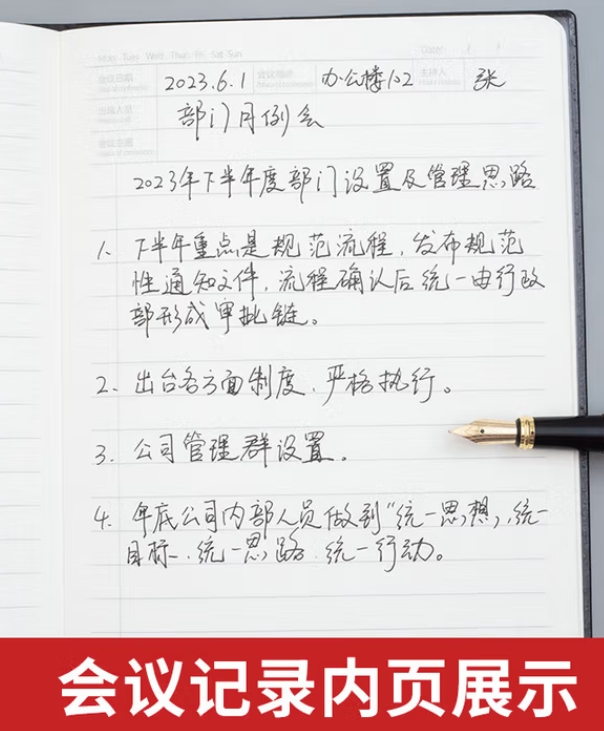 Mon Tue Wed Thu Fri Sat Sun Date: / /
会议日期 2023.6.1 会议地点 办公楼102 主持人 张
出席人员 部门月例会
会议主题
2023年下半年度部门设置及管理思路
1. 下半年重点是规范流程,发布规范
性通知文件,流程确认后统一由行政
部形成审批链。
2. 出台各方面制度、严格执行。
3. 公司管理群设置。
4. 年底公司内部人员做到“统一思想,统一
目标、统一思路、统一行动。
会议记录内页展示